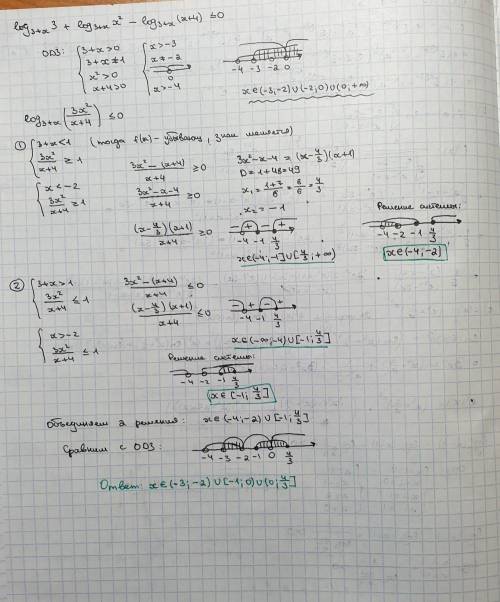 log₃₊ₓ 3 + log₃₊ₓ x² − log₃₊ₓ (x+4) ≤ 0
ОДЗ: { 3+x>0 { x>−3
3+x≠1 x≠−2
x²>0 0
x+4>0 x>−4
−4 −3 −2 0
x∈(−3;−2)∪(−2;0)∪(0;+∞)
log₃₊ₓ (3x²/(x+4)) ≤ 0
① { 3+x<1 (тогда f(x) – убывающ, знак меняется)
3x²/(x+4) ≥ 1 (3x²−(x+4))/(x+4) ≥0 3x²−x−4 = (x−4/3)(x+1)
D=1+48=49
{ x<−2 (3x²−x−4)/(x+4) ≥0 x₁=(1+7)/6=8/6=4/3
3x²/(x+4) ≥1 x₂=−1
((x−4/3)(x+1))/(x+4) ≥0 − + − +
−4 −1 4/3
x∈(−4;−1]∪[4/3;+∞)
Решение системы:
−4 −2 −1 4/3
x∈(−4;−2)
② { 3+x>1 (3x²−(x+4))/(x+4) ≤0
3x²/(x+4) ≤1 ((x−4/3)(x+1))/(x+4) ≤0 − + − +
−4 −1 4/3
{ x>−2 x∈(−∞;−4)∪[−1;4/3]
3x²/(x+4) ≤1
Решение системы:
−4 −2 −1 4/3
x∈[−1;4/3]
Объединяем 2 решения: x∈(−4;−2)∪[−1;4/3]
Сравним с ОДЗ:
−4 −3 −2 −1 0 4/3
Ответ: x∈(−3;−2)∪[−1;0)∪(0;4/3]